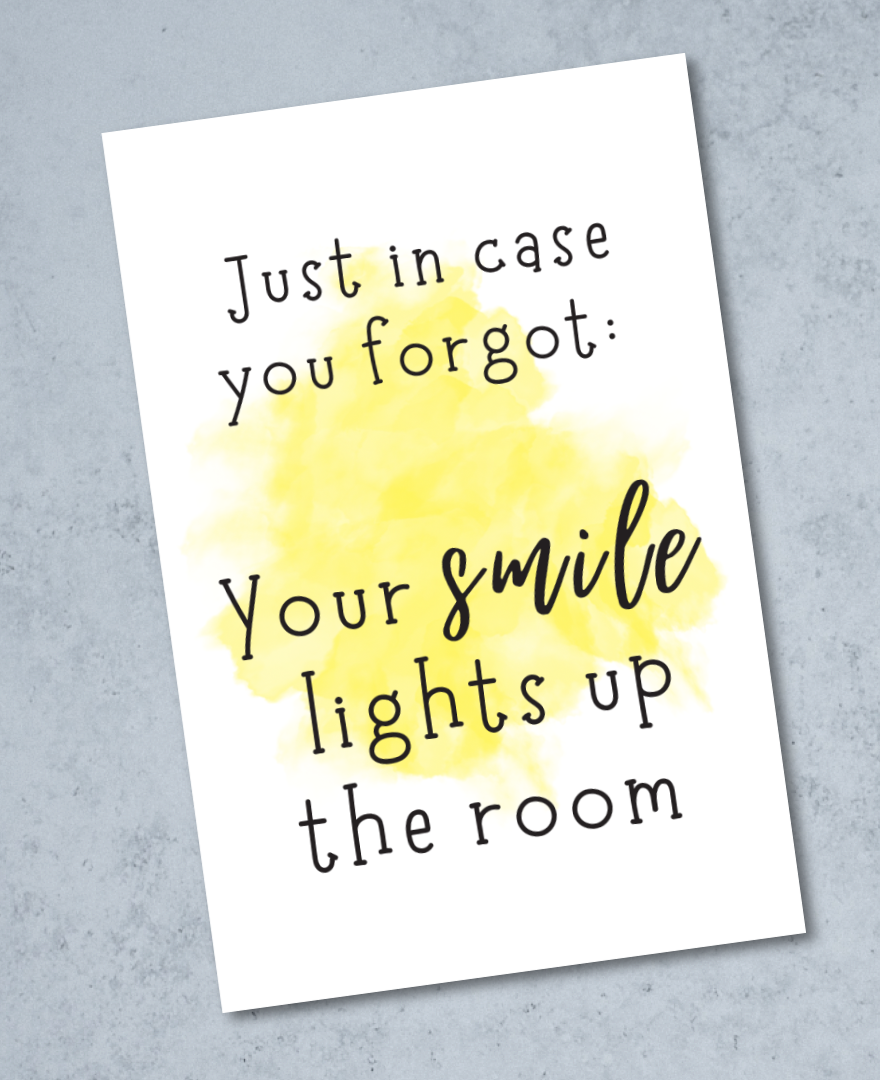 Just in case
you forgot:
Your smile
lights up
the room